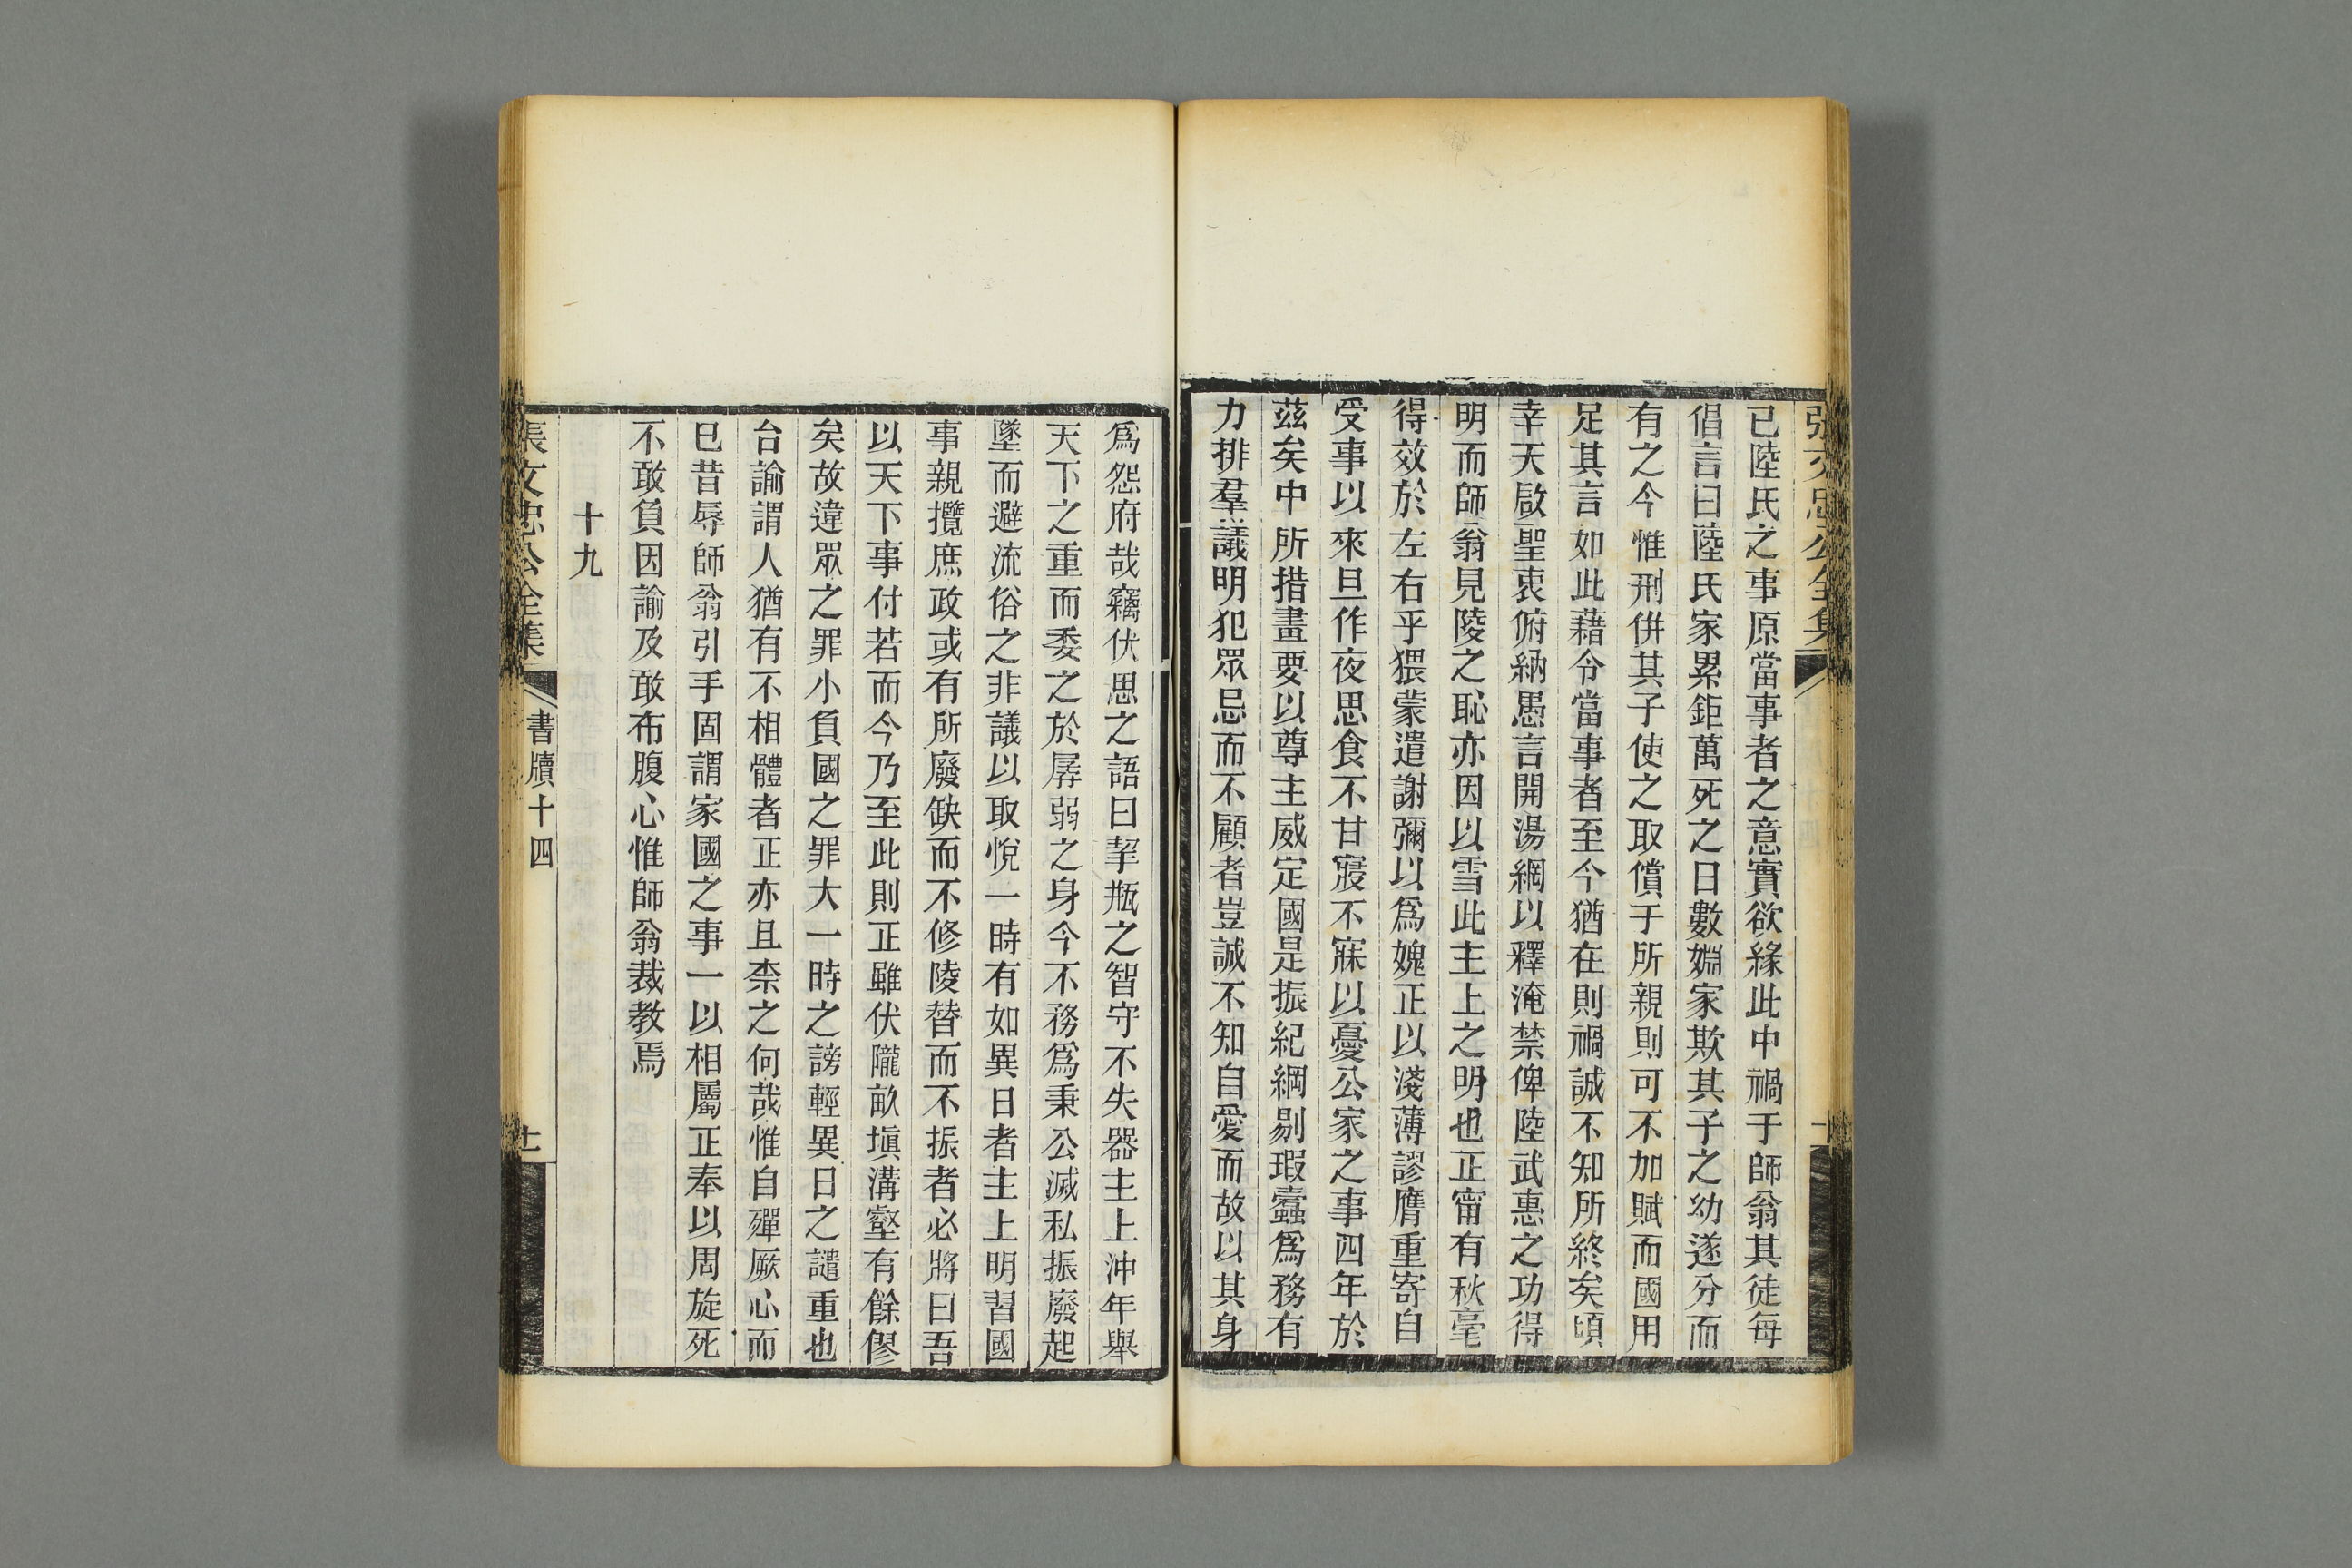 張文忠公全集
已陸氏之事原當事者之意實欲緣此中禍于師翁其徒每
倡言曰陸氏家累鉅萬死之日數姻家欺其子之幼遂分而
有之今惟刑倂其子使之取償于所親則可不加賦而國用
足其言如此藉令當事者至今猶在則禍誠不知所終矣頃
幸天啟聖衷俯納愚言開湯網以釋淹禁俾陸武惠之功得
明而師翁見陵之恥亦因以雪此主上之明也正甯有秋毫
得效於左右乎猥蒙遣謝彌以爲媿正以淺薄謬膺重寄自
受事以來旦作夜思食不甘寢不寐以憂公家之事四年於
茲矣中所措畫要以尊主威定國是振紀綱剔瑕蠹爲務有
力排羣議明犯眾忌而不顧者豈誠不知自愛而故以其身
爲怨府哉竊伏思之語曰挈瓶之智守不失器主上沖年舉
天下之重而委之於孱弱之身今不務爲秉公滅私振廢起
墜而避流俗之非議以取悅一時有如異日者主上明習國
事親攬庶政或有所廢缺而不修陵替而不振者必將曰吾
以天下事付若而今乃至此則正雖伏隴畝塡溝壑有餘僇
矣故違眾之罪小負國之罪大一時之謗輕異日之譴重也
台諭謂人猶有不相體者正亦且柰之何哉惟自殫厥心而
已昔辱師翁引手固謂家國之事一以相屬正奉以周旋死
不敢負因諭及敢布腹心惟師翁裁教焉
十九
張文忠公全集
書牘十四